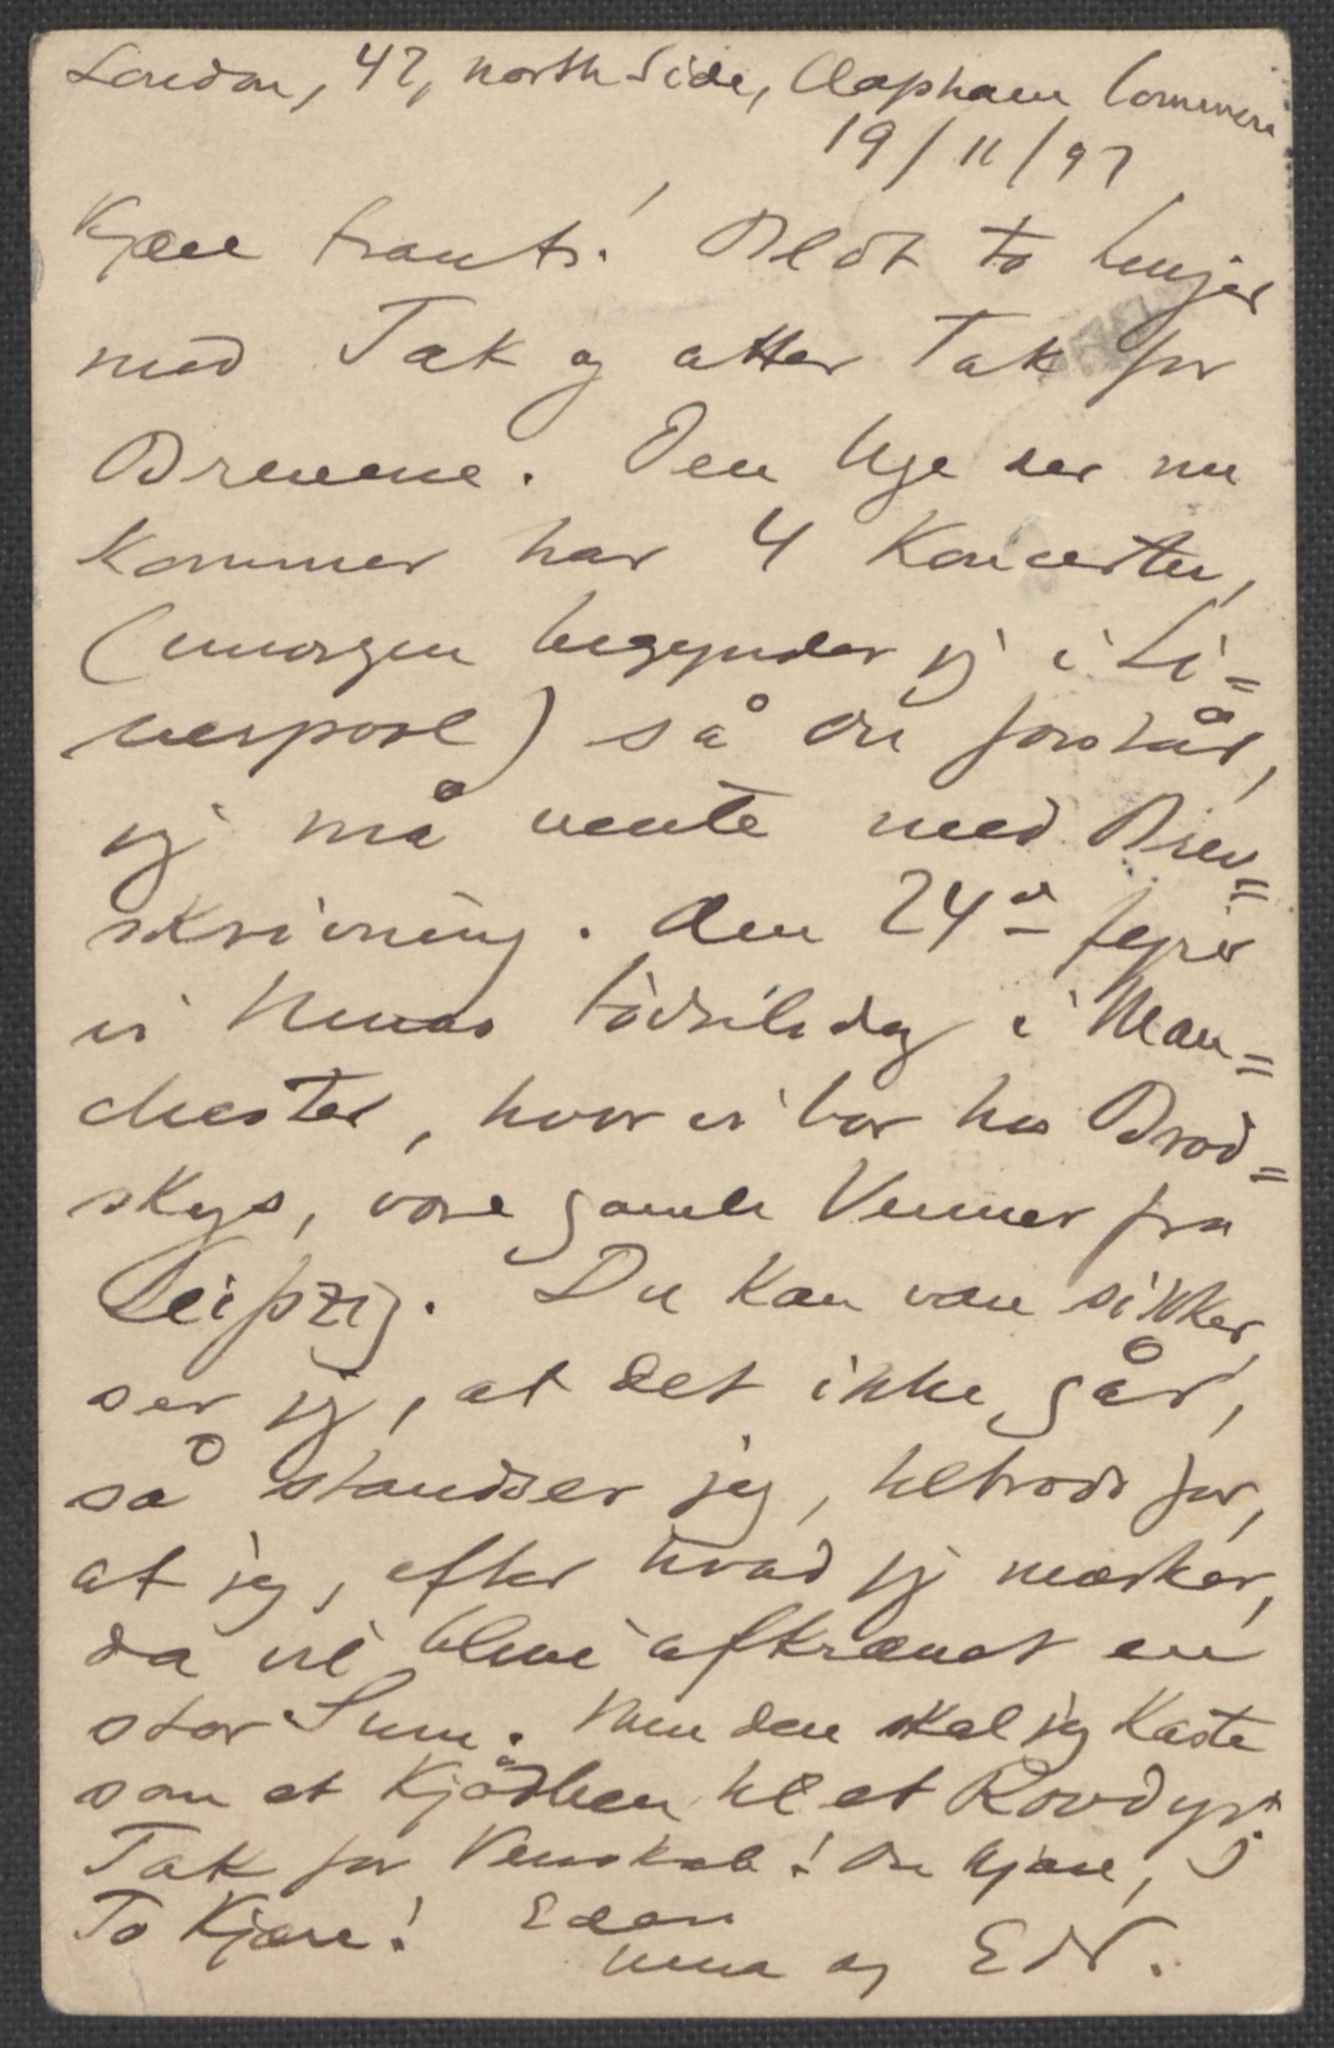 London, 47, north Side, Clapham Common
19/11/97
Kjære Frants! Blot to Linjer
med Tak og atter Tak for
Brevene. Den Uge der nu
kommer har 4 Koncerter,
(imorgen begynder jeg i Li=
verpool) så Du forstår,
jeg må vente med Brev=
skrivning. Den 24de fejrer
vi Ninas Födselsdag i Man=
chester, hvor vi bor hos Brod=
skys, vore gamle Venner fra
Leipzig. Du kan være sikker,
ser jeg, at det ikke går,
så standser jeg, tiltrods for,
at jeg, efter hvad jeg mærker,
da vil blive afkrævet en
stor Sum. Men den skal jeg kaste
som et Kjödben til et Rovdyr.
Tak for Venskab! Du kjære, I
To Kjære! Eders
Nina og Edv.